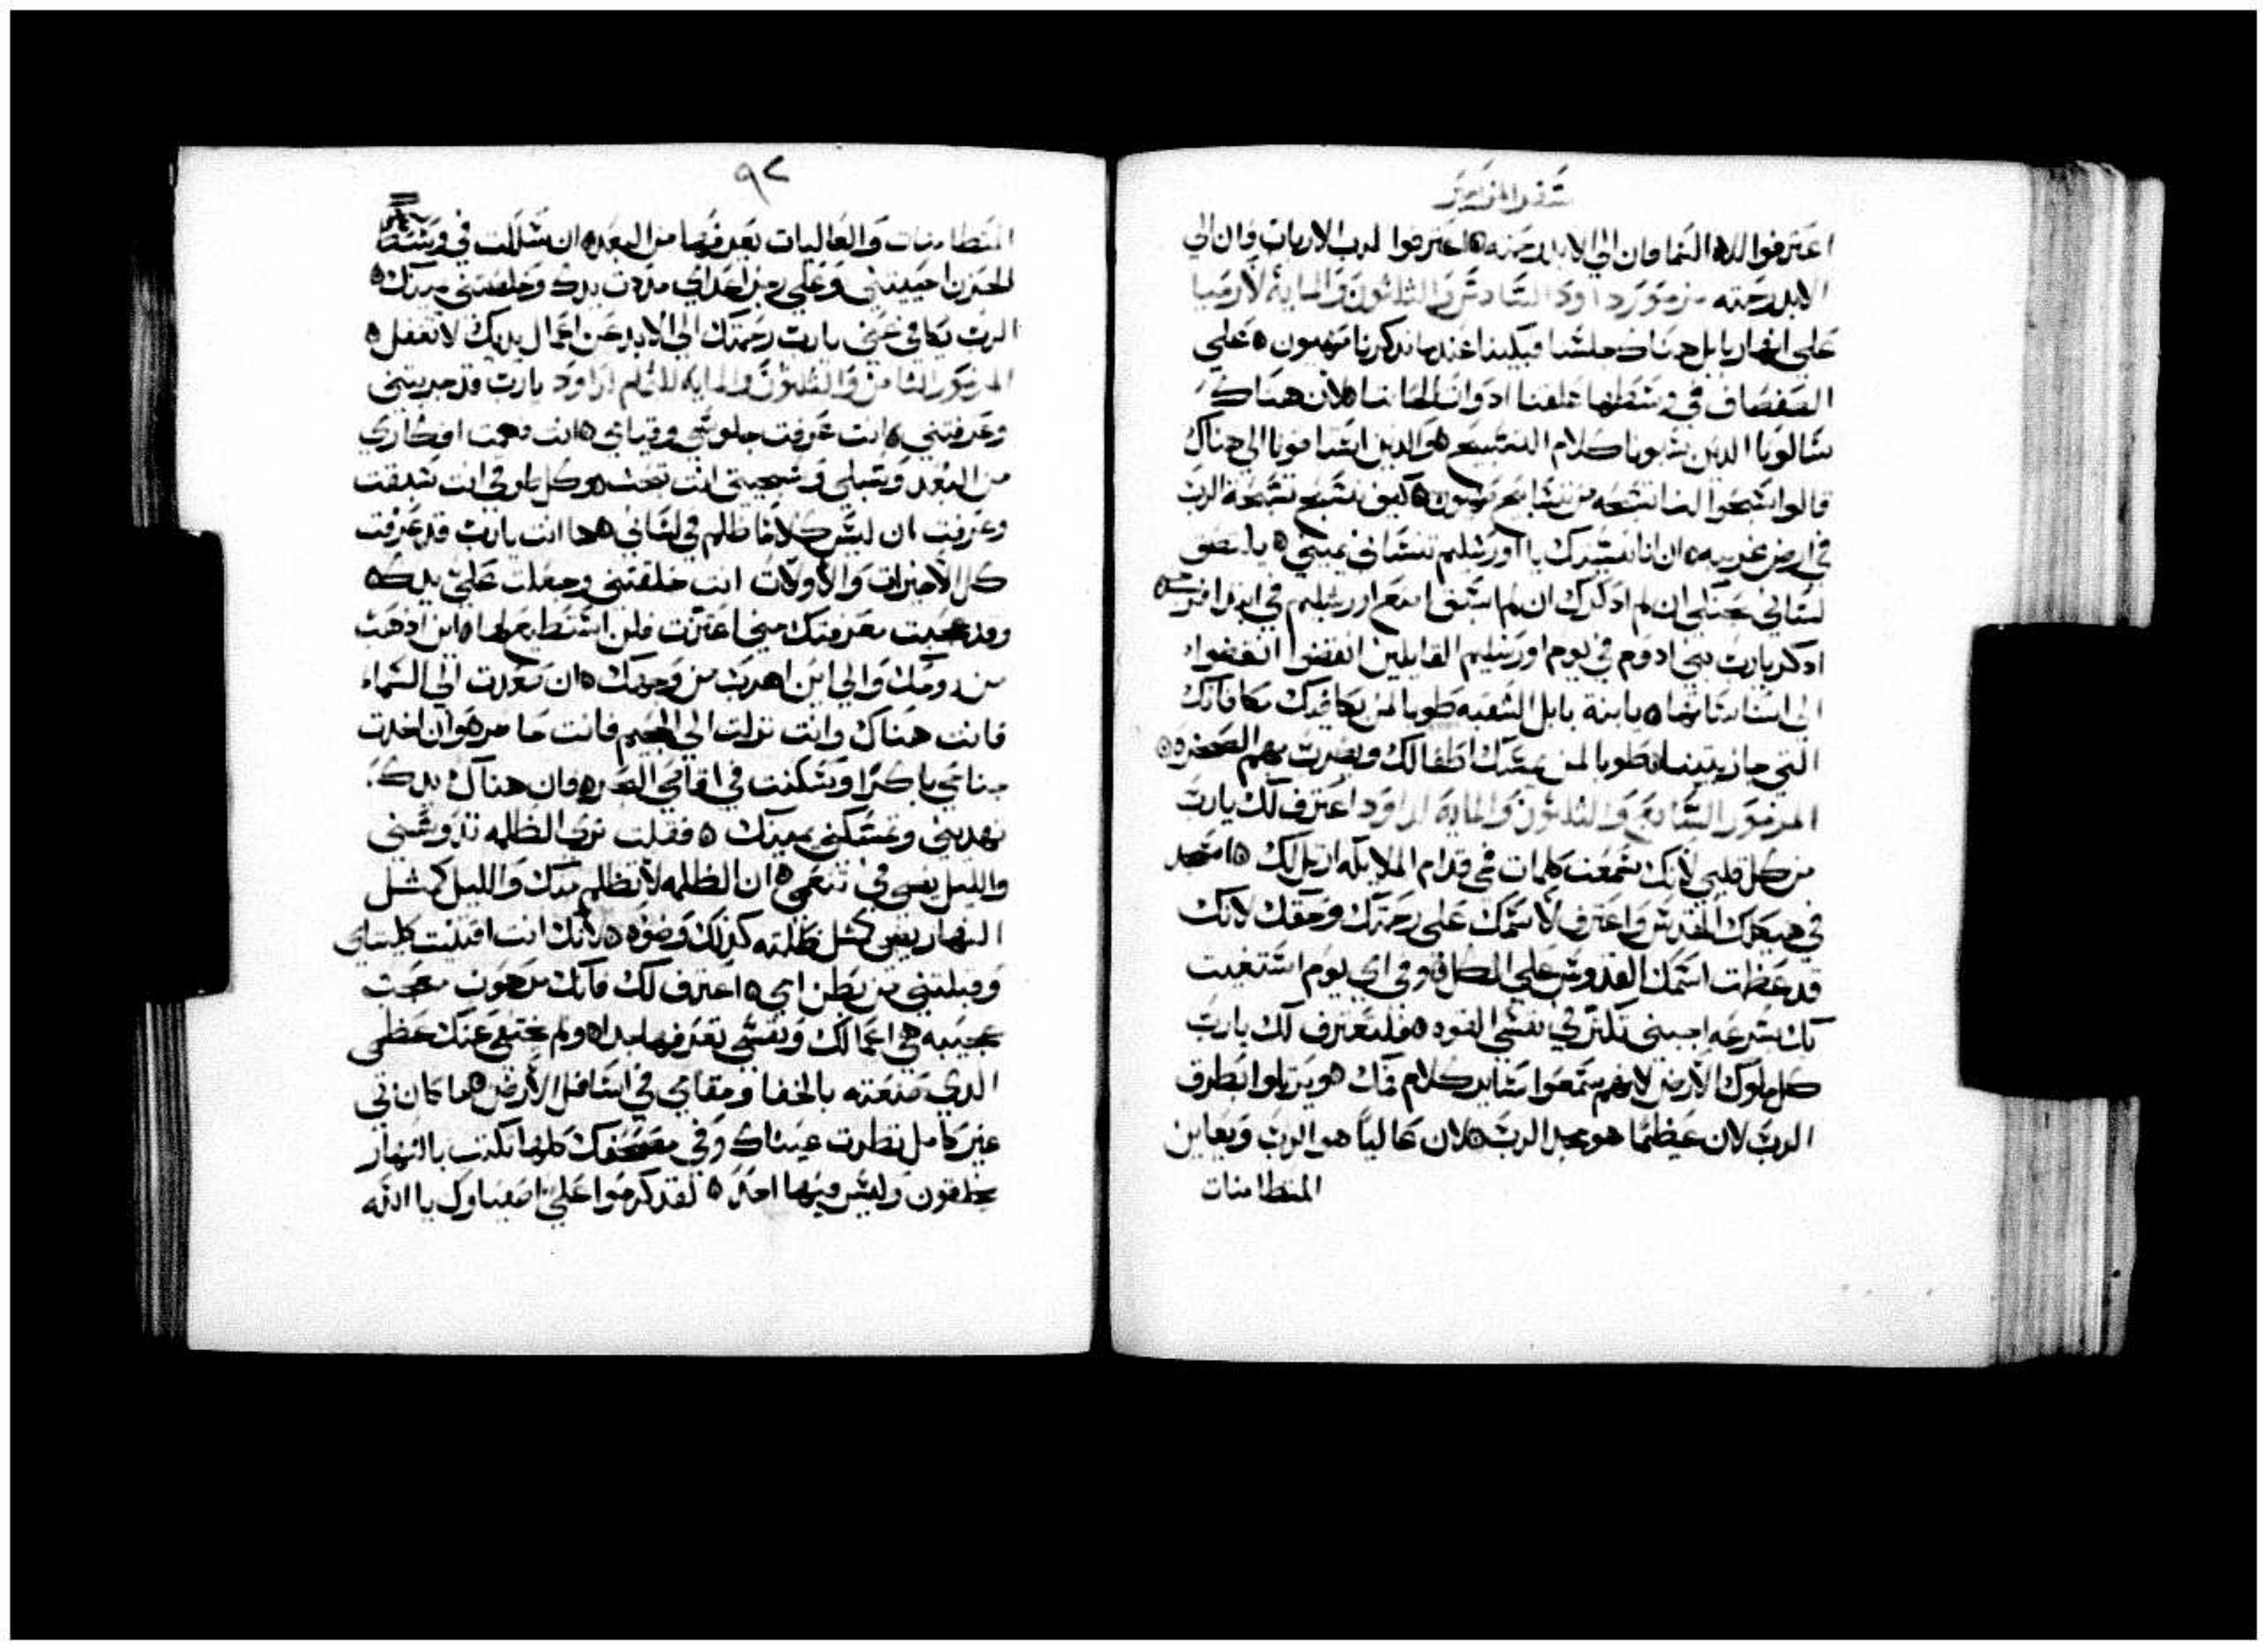 سفر المزامير
اعترفوا لاله السما فان الي الابد رحمته ٥ اعترفوا لرب الارباب فان الي
الابد رحمته مزمور داود السادس والثلثون والمايه لارميا
علي انهار بابل هناك جلسنا فبكينا عندما تذكرنا صهيون ٥ علي
الصفصاف في وسطها علقنا ادوات الحاننا ٥ لان هناك
سالونا الذين سبونا كلام التسبيح ٥ والذين استاقونا الي هناك
قالوا سبحوا لنا تسبحه من تسابيح صهيون ٥ كيف نسبح تسبحة الرب
في ارض غريبه ٥ ان انا نسيتك يا اورشليم تنساني يميني ٥ يلتصق
لساني بحنكي ان لم اذكرك ان لم اسبق اصنع اورشليم في ابتدا فرحي ٥
ادكر يارب بني ادوم في يوم اورشليم القايلين انقضوا انقضوا
الي اساساتها ٥ يابنة بابل الشقيه طوبا لمن يكافيك مكافاتك
التي جازيتينا ٥ طوبا لمن يمسك اطفالك ويضرب بهم الصخره ٥
المزمور السابع والثلثون والمايه لداود اعترف لك يارب
من كل قلبي لانك سمعت كلمات فمي قدام الملايكه ارتل لك ٥ اسجد
في هيكلك المقدس واعترف لاسمك علي رحمتك وحقك لانك
قد عظمت اسمك القدوس علي الكل ٥ وفي اي يوم استغيت
بك بسرعه اجبني تكتر في نفسي القوه ٥ فليعترف لك يارب
كل ملوك الارض لانهم سمعوا ساير كلام فمك ٥ ويرتلوا بطرق
الرب لان عظيما هو مجد الرب ٥ لان عاليا هو الرب ويعاين
المتطامنات
٩٢
المتطامنات والعاليات يعرفها من البعد ٥ ان سلكت في وسط
الحزن احييتني وعلي رجز اعداي مددت يدك وخلصتني يمينك ٥
الرب يكافي عني يارب رحمتك الي الابد عن اعمال يديك لا تغفل ٥
المزمور الثامن والثلثون والمايه للتمام لداود يارب قد جربتني
وعرفتني ٥ انت عرفت جلوسي وقيامي ٥ انت فهمت افكاري
من البعد وسبلي وسجيتي انت تحت ٥ وكل طرقي انت سبقت
وعرفت ان ليس كلاما ظلم في لساني ٥ ها انت يارب قد عرفت
كل الاخيرات والاولات انت خلقتني وجعلت علي يدك ٥
وقد عجبت معرفتك مني اعتزت فلن استطيع لها ٥ اين اذهب
من روحك والي اين اهرب من وجهك ٥ ان صعدت الي السماء
فانت هناك وان نزلت الي الجحيم فانت حاضر ٥ وان اخدت
جناحي باكرا وسكنت في اقاصي البحر ٥ فان هناك يدك
تهديني وتمسكني يمينك ٥ فقلت تري الظلمه تدوسني
والليل يضي في تنعمي ٥ ان الظلمه لا تظلم منك والليل كمثل
النهار يضي كمثل ظلمته كدلك وضوه ٥ لانك انت اقتنيت كليتاي
وقبلتني من بطن امي ٥ اعترف لك فانك مرهوب معجب
عجيبه هي اعمالك ونفسي تعرفها جدا ٥ ولم يختفي عنك عظمي
الدي صنعته بالخفا ومقامي في اسافل الارض ٥ ها كان ني
غير كامل نظرت عيناك وفي مصحفك كلها تكتب بالنهار
يخلقون وليس فيها احد ٥ لقد كرموا علي اصفياوك يا الله